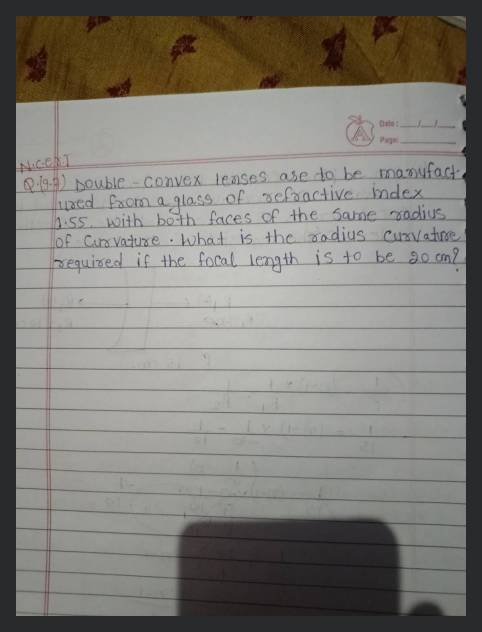 Date: __/__/__
Page:
N.C.E.R.T
Q.(9.7) Double-convex lenses are to be manufact-
ured from a glass of refractive index
1.55. with both faces of the same radius
of Curvature. What is the radius curvature
required if the focal length is to be 20 cm?